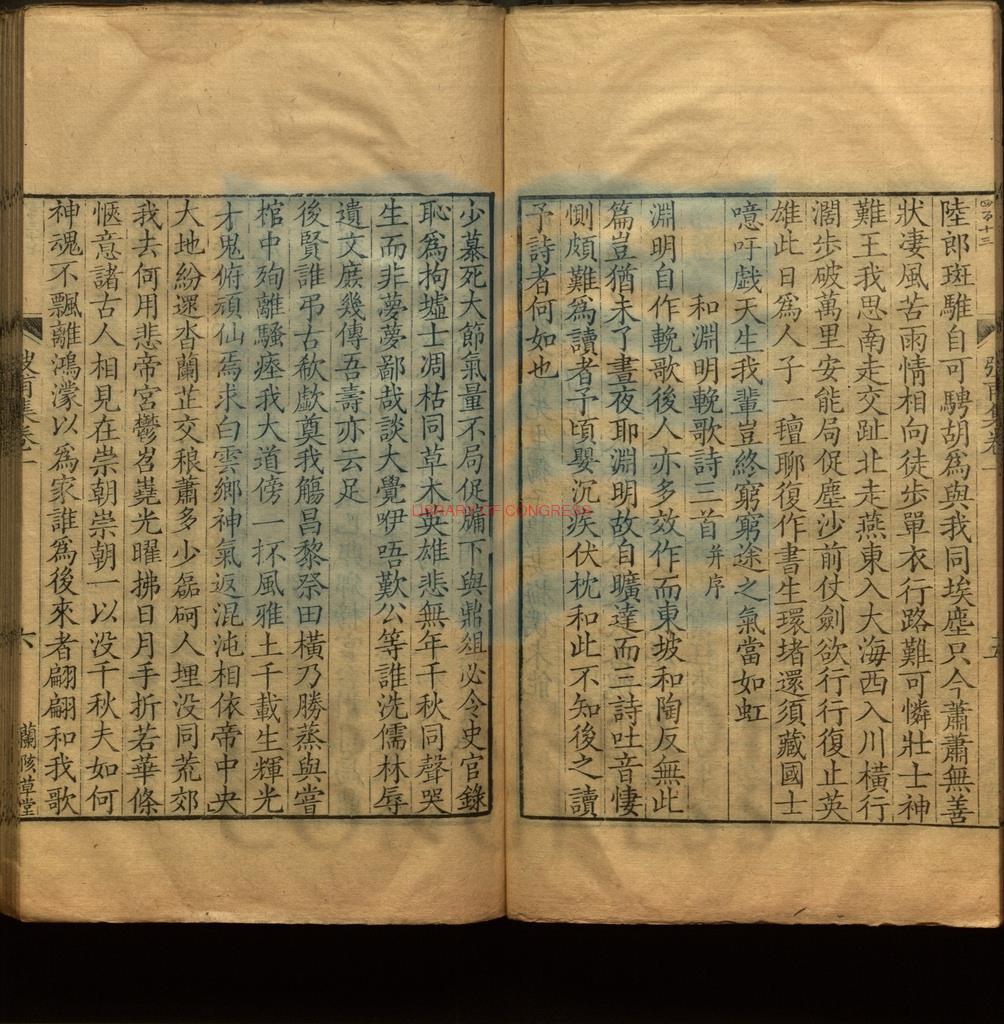 四百十三
陸郎斑騅自可騁胡爲與我同埃塵只今蕭蕭無善
狀淒風苦雨情相向徒步單衣行路難可憐壯士神
難王我思南走交趾北走燕東入大海西入川橫行
濶步破萬里安能局促塵沙前仗劍欲行行復止英
雄此日爲人子一氊聊復作書生環堵還須藏國士
噫吁戲天生我輩豈終窮窮途之氣當如虹
和淵明輓歌詩三首并序
淵明自作輓歌後人亦多效作而東坡和陶反無此
篇豈猶未了晝夜耶淵明故自曠達而三詩吐音悽
惻頗難爲讀者予頃嬰沉疾伏枕和此不知後之讀
予詩者何如也
少慕死大節氣量不局促牖下與鼎俎必令史官錄
恥爲拘墟士凋枯同草木英雄悲無年千秋同聲哭
生而非夢夢鄙哉談大覺咿唔歎公等誰洗儒林辱
遺文庶幾傳吾壽亦云足
後賢誰弔古欷歔奠我觴昌黎祭田橫乃勝蒸與嘗
棺中殉離騷瘞我大道傍一抔風雅土千載生輝光
才鬼俯頑仙焉求白雲鄉神氣返混沌相依帝中央
大地紛還沓蘭芷交稂蕭多少磊砢人埋没同荒郊
我去何用悲帝宮鬱岧嶤光曜拂日月手折若華條
愜意諸古人相見在崇朝崇朝一以没千秋夫如何
神魂不飄離鴻濛以爲家誰爲後來者翩翩和我歌
集卷一
六
蘭陔草堂
LIBRARY OF CONGRESS